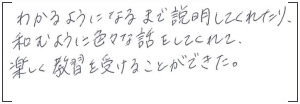 わかるようになるまで説明してくれたり、
和むように色々な話をしてくれて、
楽しく教習を受けることができた。